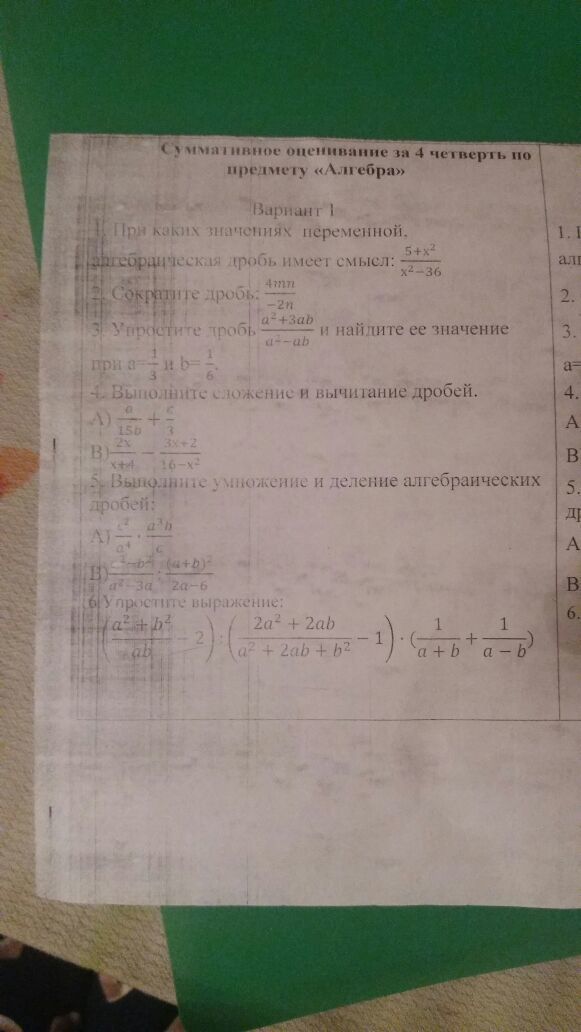 Суммативное оценивание за 4 четверть по
предмету «Алгебра»
Вариант 1
1. При каких значениях переменной,
алгебраическая дробь имеет смысл: (5+x²)/(x²−36)
2. Сократите дробь: 4mn/(−2n)
3. Упростите дробь (a²+3ab)/(a²−ab) и найдите ее значение
при a=1/3 и b=1/6.
4. Выполните сложение и вычитание дробей.
А) a/15b + c/3
В) 2x/(x+4) − (3x+2)/(16−x²)
5. Выполните умножение и деление алгебраических
дробей:
А) c²/a⁴ · a³b/c
В) /(a²−3a) : (a+b)²/(2a−6)
6 Упростите выражение:
((a² + b²)/ab − 2) : ((2a² + 2ab)/(a² + 2ab + b²) − 1) · (1/(a + b) + 1/(a − b))
1.
алг
2.
3.
a=
4.
А
В
5.
др
А
В
6.